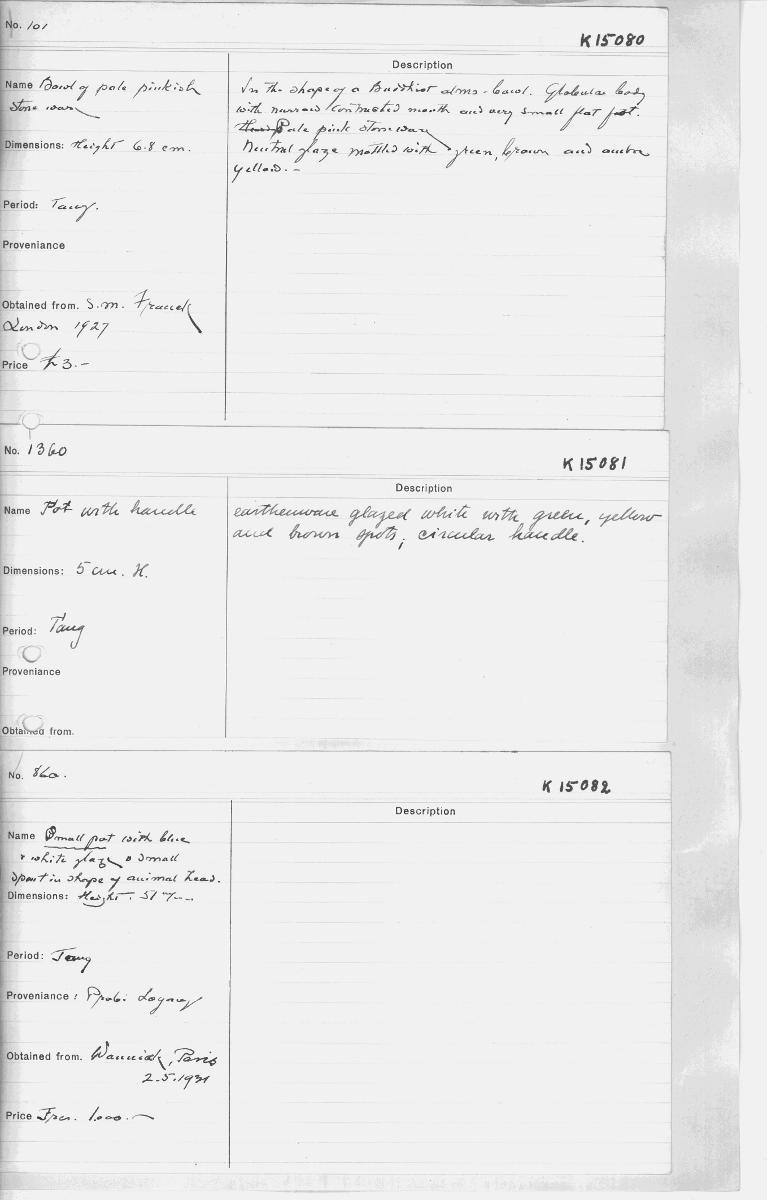 No. 101
K 15080
Description
Name Bowl of pale pinkish
stone ware
In the shape of a Buddhist alms-bowl. Globular body
with narrow contracted mouth and very small flat foot.
Pale pink stoneware
Dimensions: Height 6.8 cm.
Neutral glaze mottled with green, brown and amber
yellow. -
Period: Tang.
Proveniance
Obtained from. S.M. Franck
London 1927
Price £3.-
No. 1360
K 15081
Description
Name Pot with handle
earthenware glazed white with green, yellow
and brown spots; circular handle.
Dimensions: 5 cm. H.
Period: Tang
Proveniance
Obtained from.
No. 860.
K 15082
Description
Name Small pot with blue
& white glaze & small
spout in shape of animal head.
Dimensions: Height. 51 m/m
Period: Tang
Proveniance: Prob: Loyang
Obtained from. Wannieck, Paris
2.5.1931
Price Frcs. 1.000.-